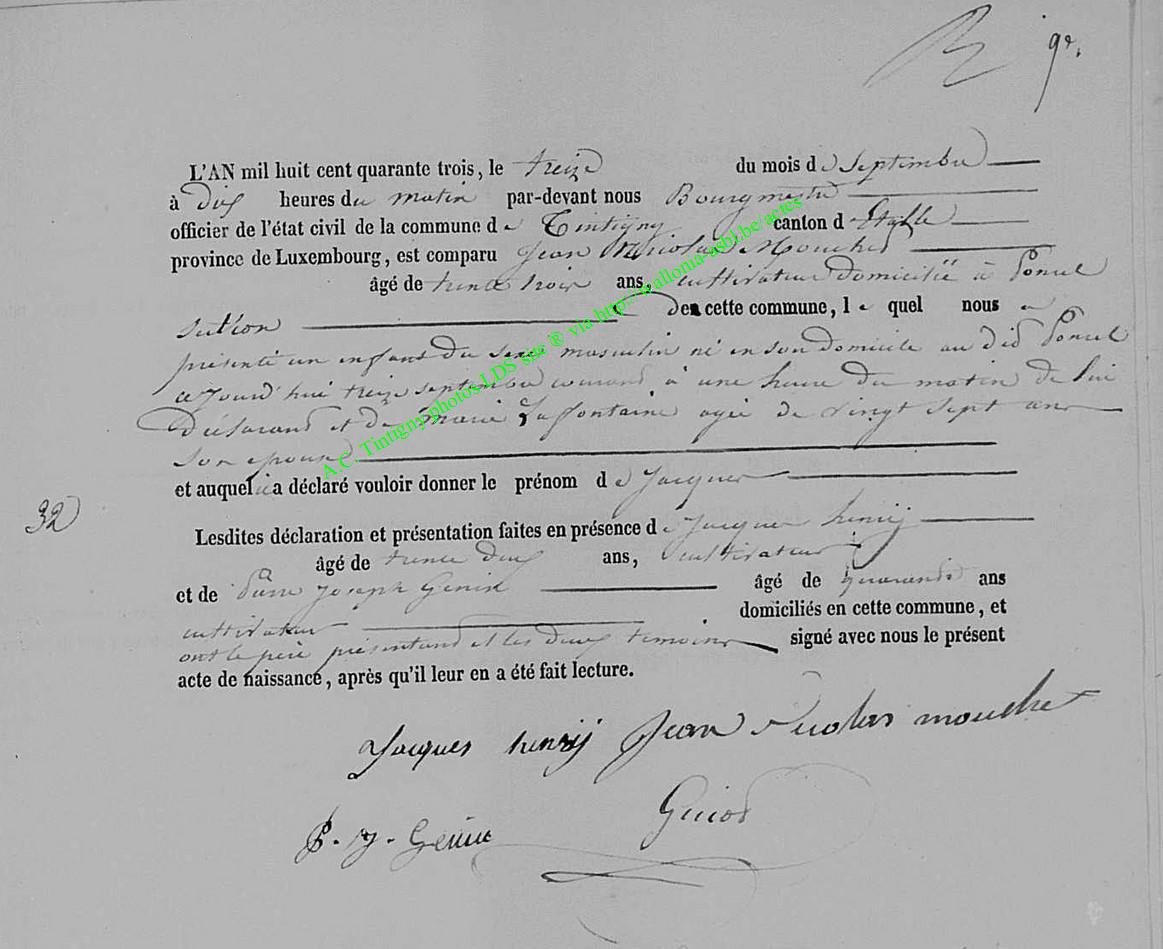 9e.
L'AN mil huit cent quarante trois, le treize du mois de Septembre
à dix heures du matin par-devant nous Bourgmestre
officier de l'état civil de la commune de Tintigny canton d'Etalle
province de Luxembourg, est comparu Jean Nicolas Mouchet
âgé de trente trois ans, cultivateur domicilié à Poncel
section de cette commune, le quel nous a
présenté un enfant du sexe masculin né en son domicile au dit Poncel
ce jourd'hui treize septembre courant à une heure du matin de lui
Déclarant et de marie Lafontaine agée de vingt sept ans
son épouse
et auquel il a déclaré vouloir donner le prénom de Jacques
32
Lesdites déclaration et présentation faites en présence de Jacques henrÿ
âgé de trente deux ans, cultivateur
et de Pierre Joseph Genin âgé de quarante ans
cultivateur domiciliés en cette commune, et
ont le père présentant et les deux temoins signé avec nous le présent
acte de naissance, après qu'il leur en a été fait lecture.
Jacques henrÿ Jean Nicolas mouchet
P. J. Genin
A.C. Tintigny photos LDS site ® via http://wallonia-asbl.be/actes